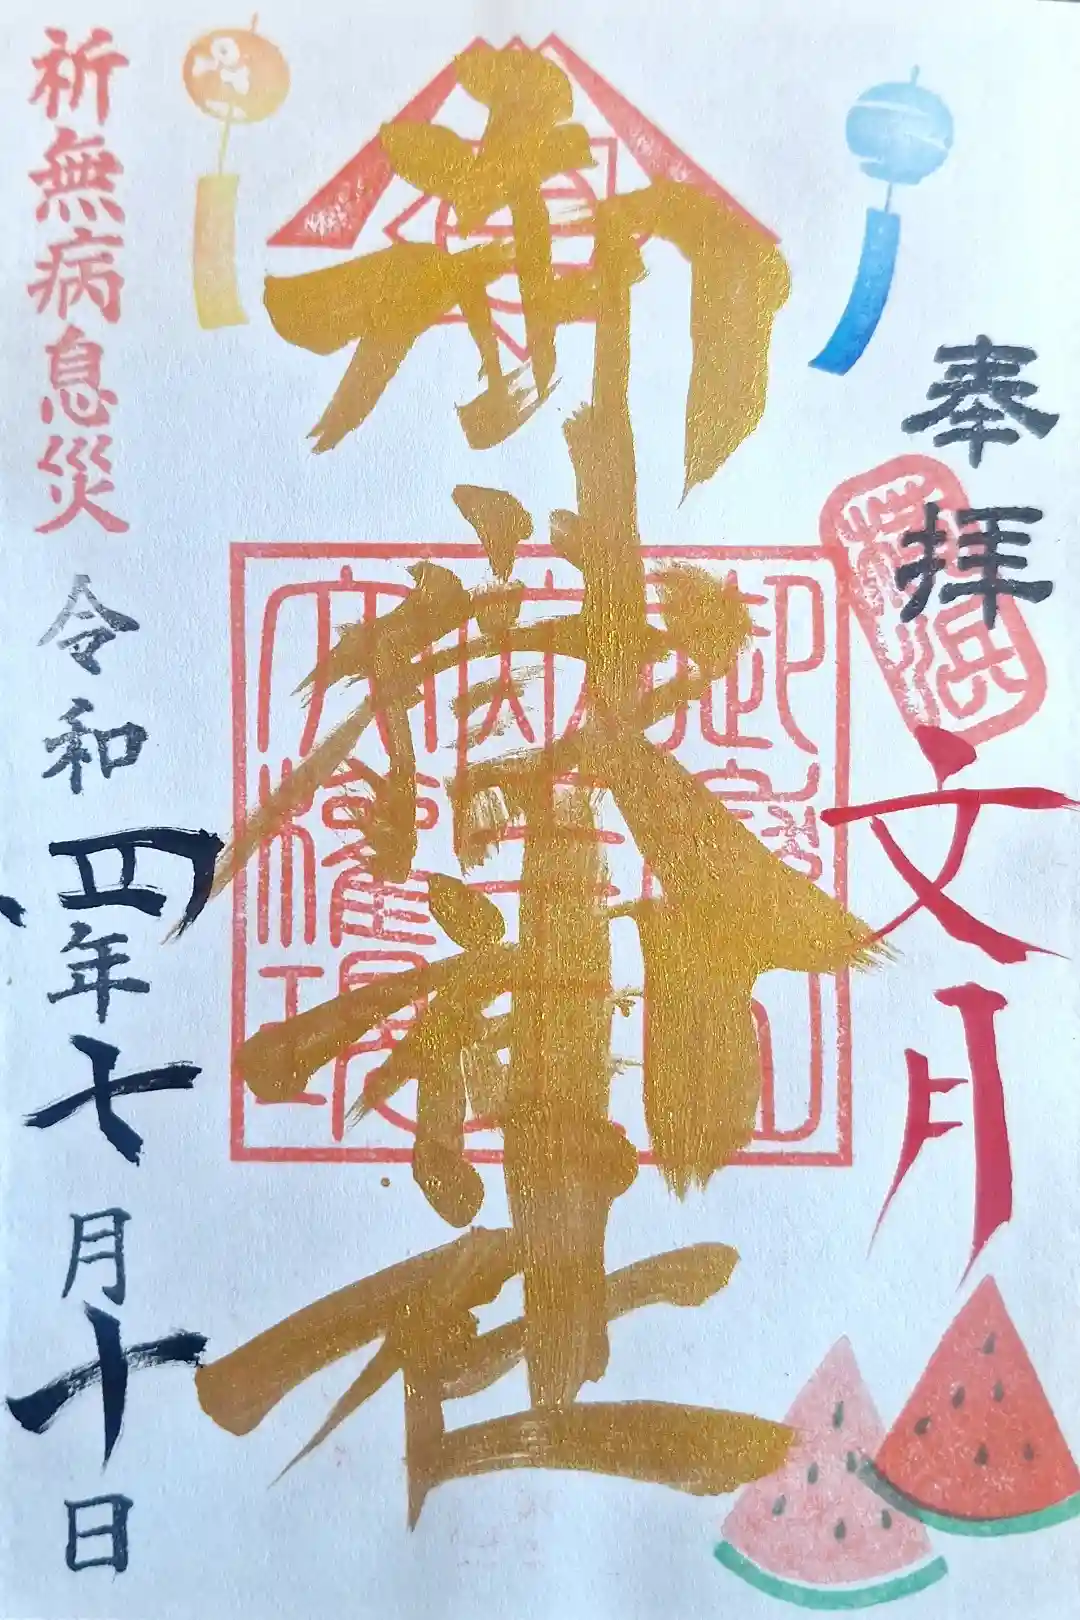 奉拝
横浜
文月
御嶽神社
祈無病息災
令和四年七月十日